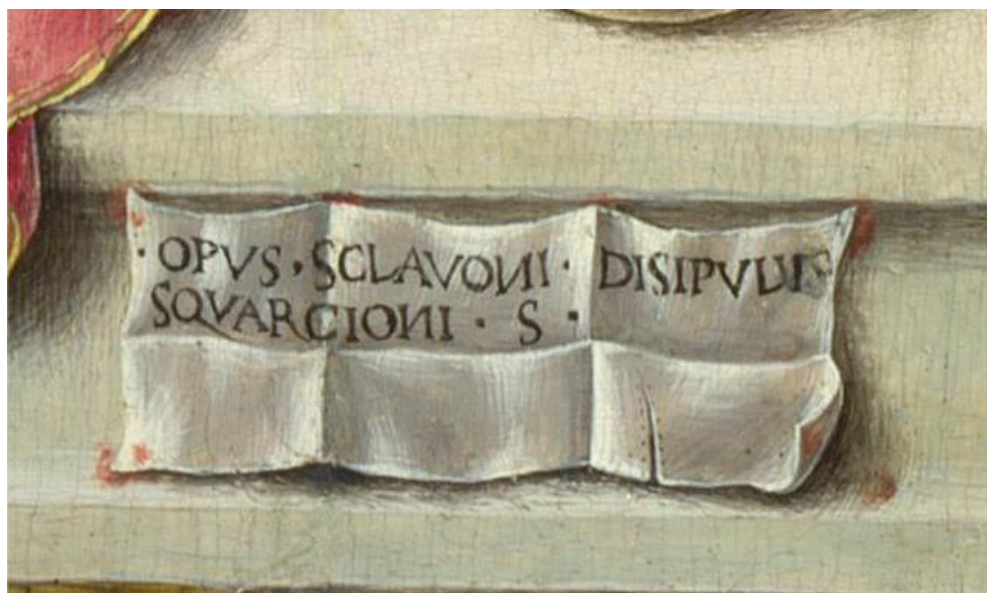 · OPVS · SCLAVONI · DISIPVLI
SQVARCIONI · S ·